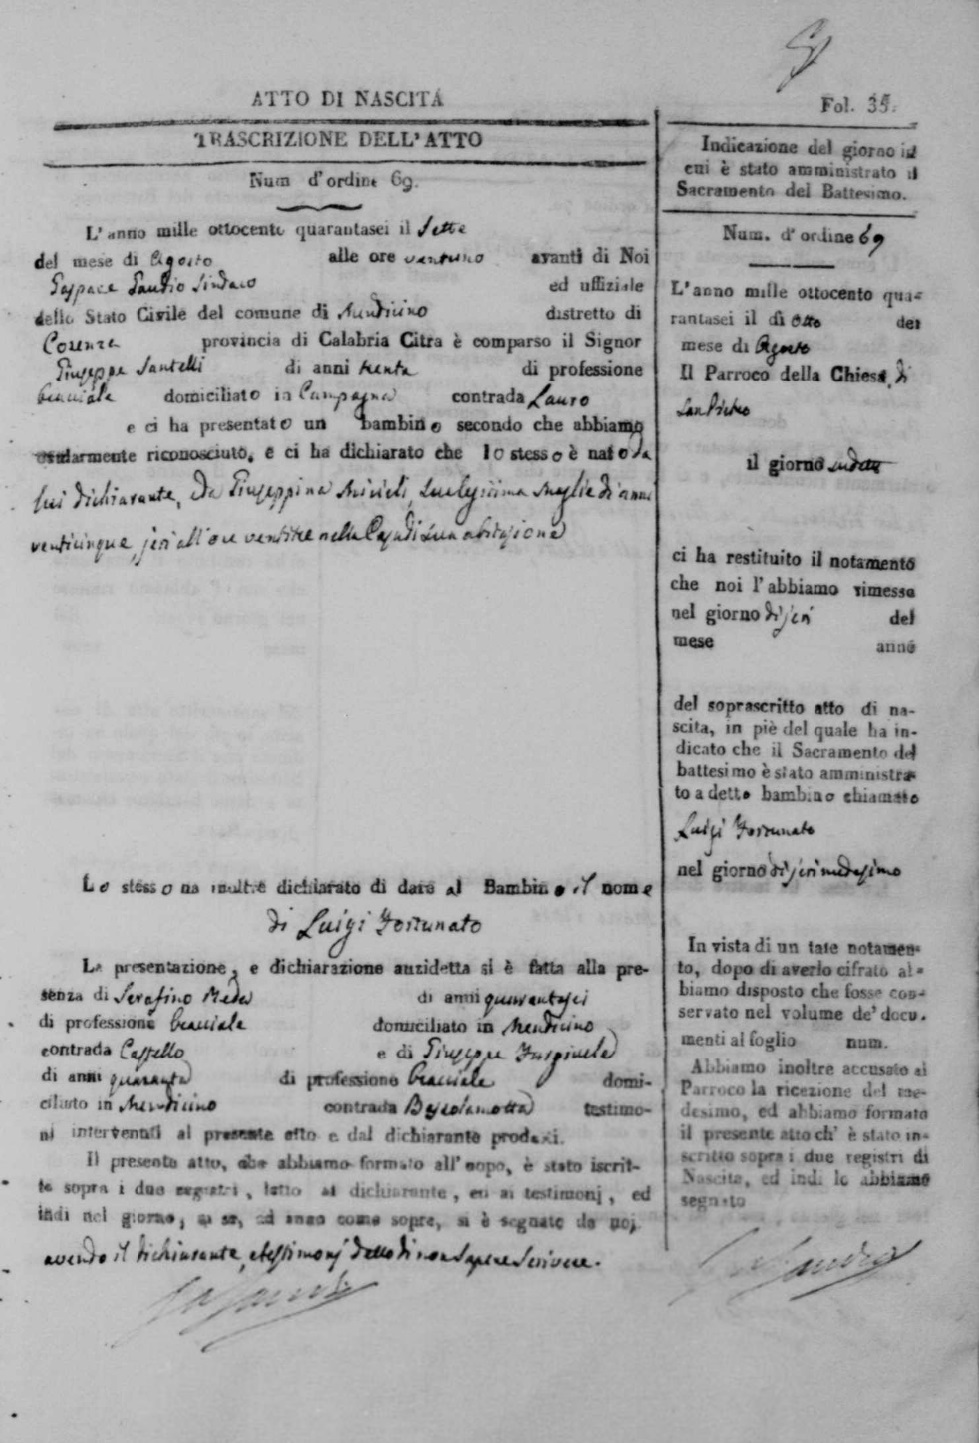 ATTO DI NASCITÀ
TRASCRIZIONE DELL'ATTO
Num d'ordine 69.
L'anno mille ottocento quarantasei il Sette
del mese di Agosto alle ore ventuno avanti di Noi
Gaspare Gaudio Sindaco ed uffiziale
dello Stato Civile del comune di Mendicino distretto di
Cosenza provincia di Calabria Citra è comparso il Signor
Giuseppe Santelli di anni trenta di professione
bracciale domiciliato in Campagna contrada Lauro
e ci ha presentato un bambino secondo che abbiamo
ocularmente riconosciuto, e ci ha dichiarato che lo stesso è nato da
lui dichiarante, da Giuseppina sua legittima moglie di anni
venticinque, jeri all'ore ventitre nella Casa di sua abitazione
Lo stesso ha inoltre dichiarato di dare al Bambino il nome
di Luigi Fortunato
La presentazione, e dichiarazione anzidetta si è fatta alla pre-
senza di Serafino Reda di anni quarantasei
di professione bracciale domiciliato in Mendicino
contrada Castello e di Giuseppe
di anni quaranta di professione bracciale domi-
ciliato in Mendicino contrada testimo-
ni intervenuti al presente atto e dal dichiarante prodotti.
Il presente atto, che abbiamo formato all'uopo, è stato iscrit-
to sopra i due registri, letto al dichiarante, ed ai testimonj, ed
indi nel giorno, mese, ed anno come sopra, si è segnato da noi,
avendo il dichiarante, e testimonj detto di non sapere scrivere.
Fol. 35.
Indicazione del giorno in
cui è stato amministrato il
Sacramento del Battesimo.
Num. d'ordine 69
L'anno mille ottocento qua-
rantasei il dì Otto del
mese di Agosto
Il Parroco della Chiesa di
San Pietro
il giorno sudetto
ci ha restituito il notamento
che noi l'abbiamo rimesso
nel giorno di jeri del
mese anno
del soprascritto atto di na-
scita, in piè del quale ha in-
dicato che il Sacramento del
battesimo è stato amministra-
to a detto bambino chiamato
Luigi Fortunato
nel giorno di jeri medesimo
In vista di un tale notamen-
to, dopo di averlo cifrato ab-
biamo disposto che fosse con-
servato nel volume de' docu-
menti al foglio num.
Abbiamo inoltre accusato al
Parroco la ricezione del me-
desimo, ed abbiamo formato
il presente atto ch' è stato in-
scritto sopra i due registri di
Nascita, ed indi lo abbiamo
segnato